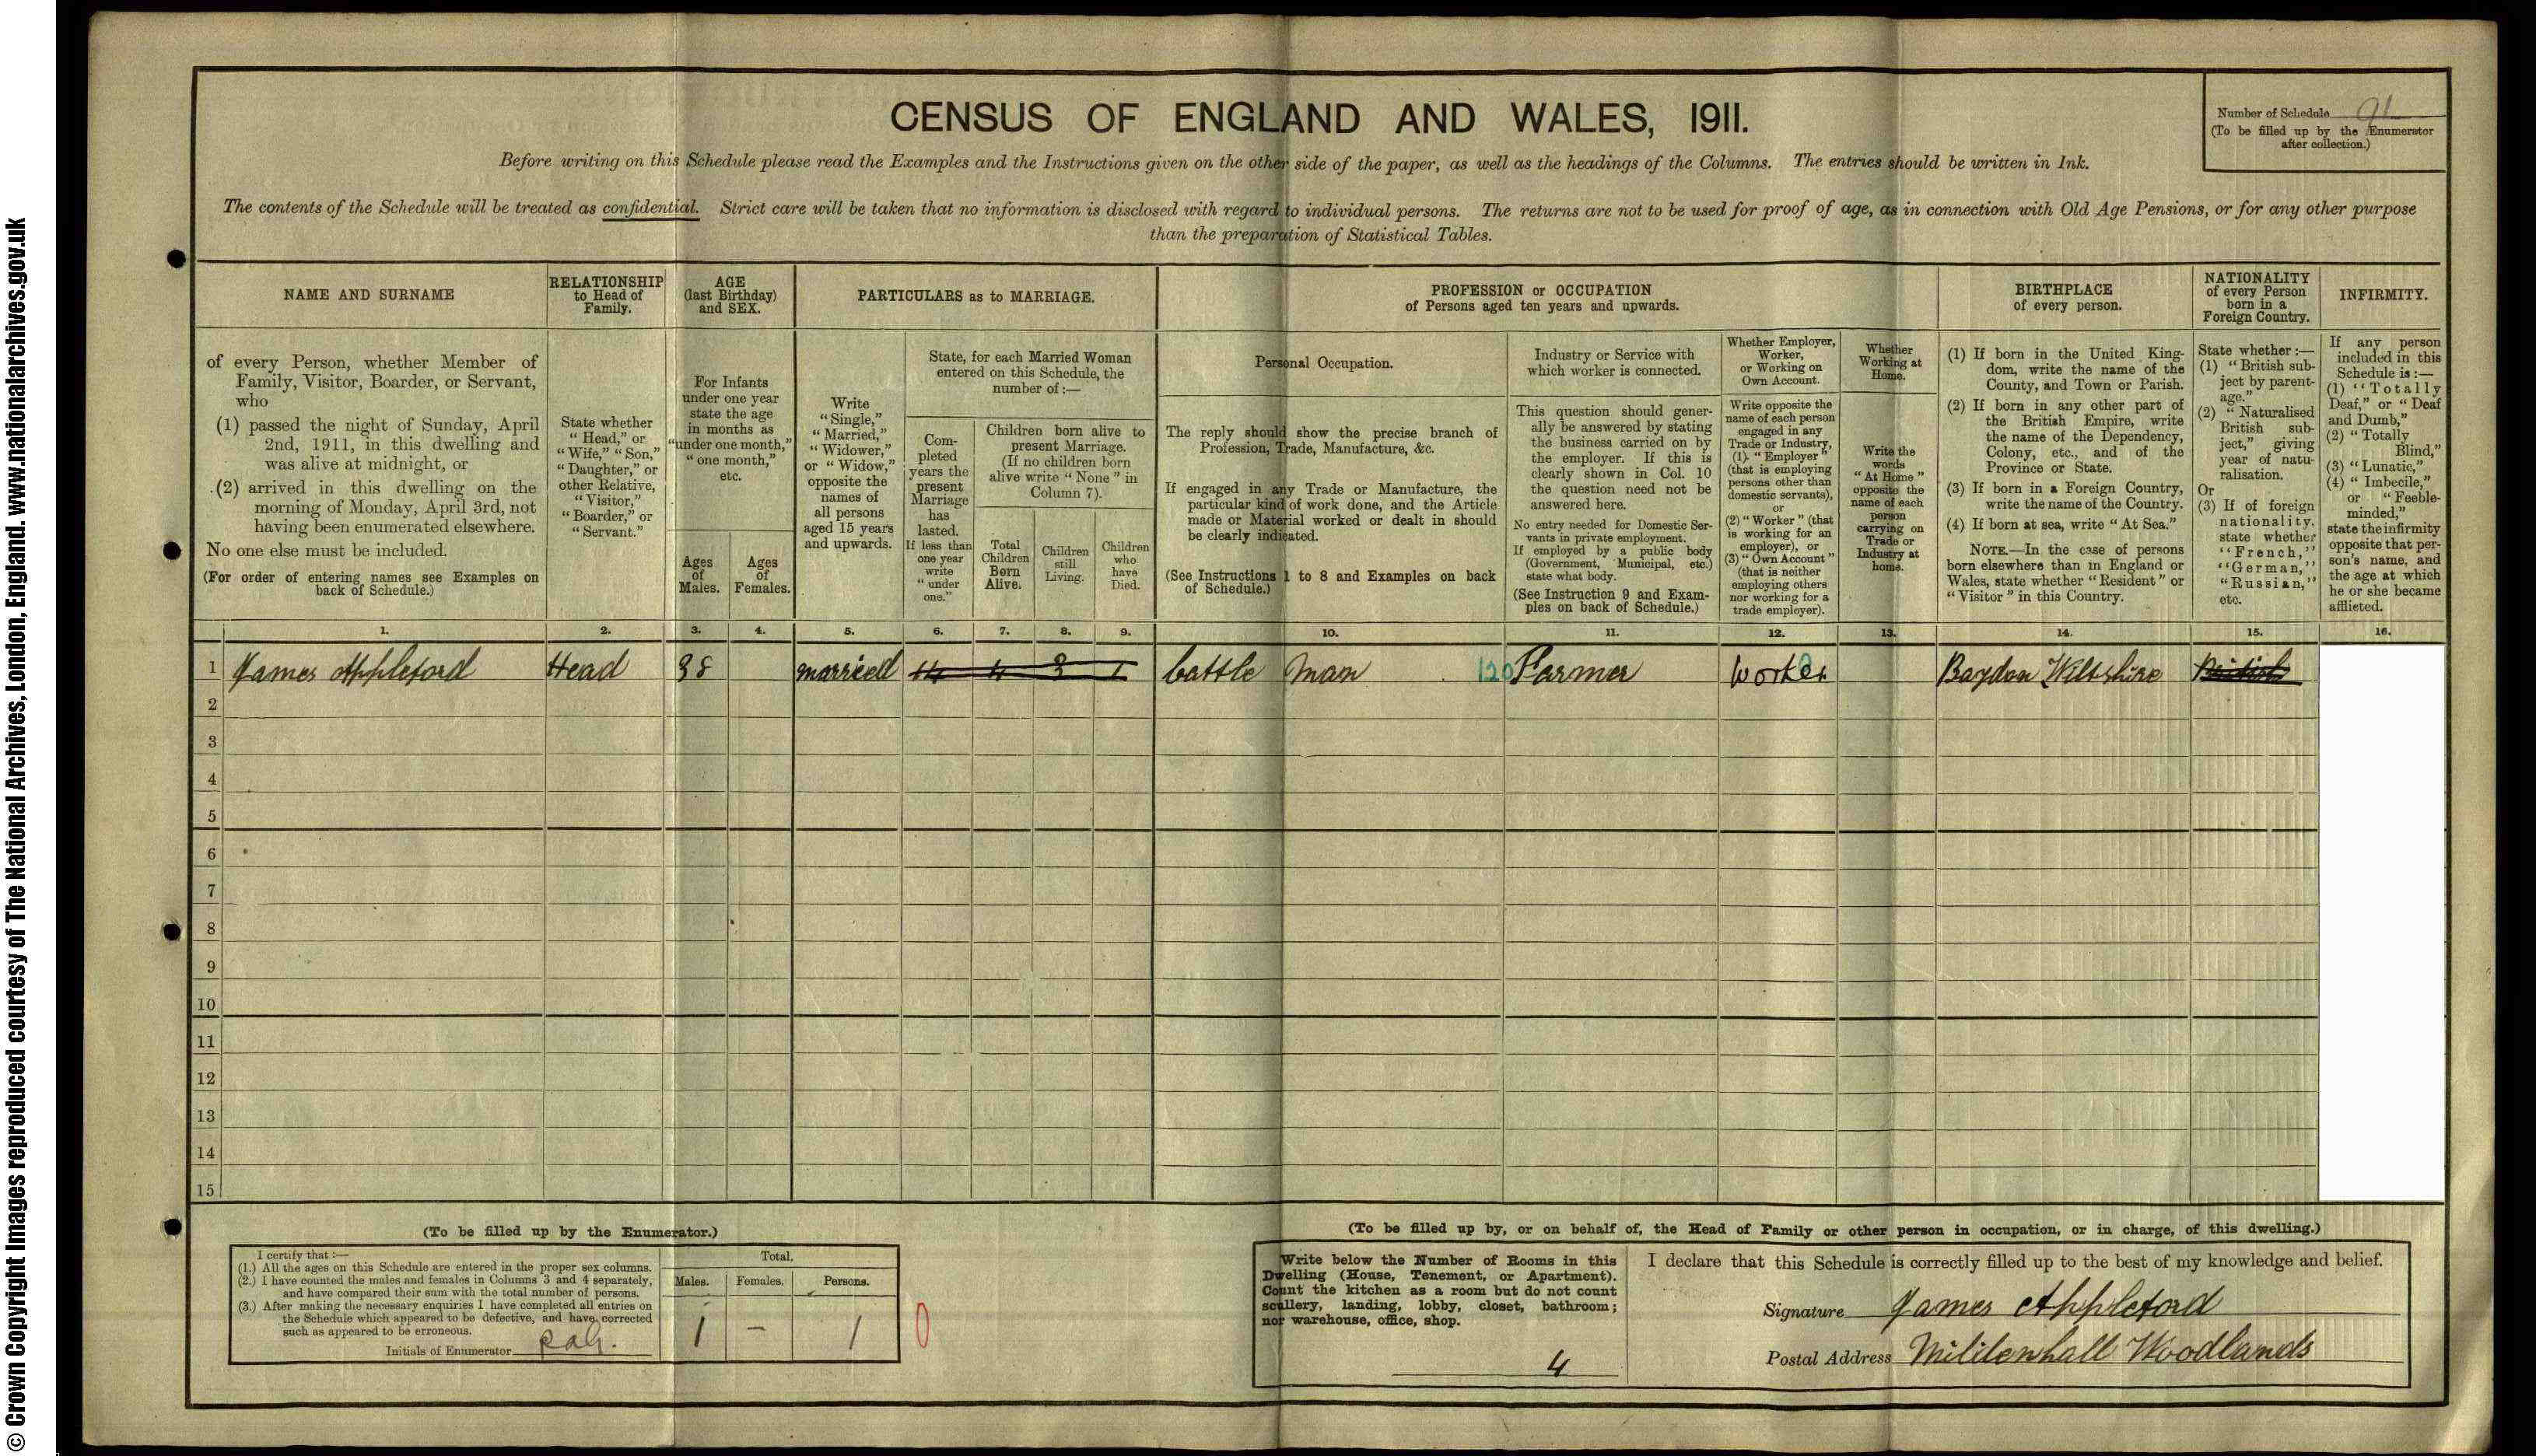 © Crown Copyright Images reproduced courtesy of The National Archives, London, England. www.nationalarchives.gov.uk
CENSUS OF ENGLAND AND WALES, 1911.
Number of Schedule 91
(To be filled up by the Enumerator
after collection.)
Before writing on this Schedule please read the Examples and the Instructions given on the other side of the paper, as well as the headings of the Columns. The entries should be written in Ink.
The contents of the Schedule will be treated as confidential. Strict care will be taken that no information is disclosed with regard to individual persons. The returns are not to be used for proof of age, as in connection with Old Age Pensions, or for any other purpose
than the preparation of Statistical Tables.
NAME AND SURNAME
of every Person, whether Member of
Family, Visitor, Boarder, or Servant,
who
(1) passed the night of Sunday, April
2nd, 1911, in this dwelling and
was alive at midnight, or
(2) arrived in this dwelling on the
morning of Monday, April 3rd, not
having been enumerated elsewhere.
No one else must be included.
(For order of entering names see Examples on
back of Schedule.)
RELATIONSHIP
to Head of
Family.
State whether
"Head," or
"Wife," "Son,"
"Daughter," or
other Relative,
"Visitor,"
"Boarder," or
"Servant."
AGE
(last Birthday)
and SEX.
For Infants
under one year
state the age
in months as
"under one month,"
"one month,"
etc.
Ages
of
Males.
Ages
of
Females.
PARTICULARS as to MARRIAGE.
Write
"Single,"
"Married,"
"Widower,"
or "Widow,"
opposite the
names of
all persons
aged 15 years
and upwards.
State, for each Married Woman
entered on this Schedule, the
number of:—
Com-
pleted
years the
present
Marriage
has
lasted.
If less than
one year
write
"under
one."
Children born alive to
present Marriage.
(If no children born
alive write "None" in
Column 7).
Total
Children
Born
Alive.
Children
still
Living.
Children
who
have
Died.
PROFESSION or OCCUPATION
of Persons aged ten years and upwards.
Personal Occupation.
The reply should show the precise branch of
Profession, Trade, Manufacture, &c.
If engaged in any Trade or Manufacture, the
particular kind of work done, and the Article
made or Material worked or dealt in should
be clearly indicated.
(See Instructions 1 to 8 and Examples on back
of Schedule.)
Industry or Service with
which worker is connected.
This question should gener-
ally be answered by stating
the business carried on by
the employer. If this is
clearly shown in Col. 10
the question need not be
answered here.
No entry needed for Domestic Ser-
vants in private employment.
If employed by a public body
(Government, Municipal, etc.)
state what body.
(See Instruction 9 and Exam-
ples on back of Schedule.)
Whether Employer,
Worker,
or Working on
Own Account.
Write opposite the
name of each person
engaged in any
Trade or Industry,
(1) "Employer"
(that is employing
persons other than
domestic servants),
or
(2) "Worker" (that
is working for an
employer), or
(3) "Own Account"
(that is neither
employing others
nor working for a
trade employer).
Whether
Working at
Home.
Write the
words
"At Home"
opposite the
name of each
person
carrying on
Trade or
Industry at
home.
BIRTHPLACE
of every person.
(1) If born in the United King-
dom, write the name of the
County, and Town or Parish.
(2) If born in any other part of
the British Empire, write
the name of the Dependency,
Colony, etc., and of the
Province or State.
(3) If born in a Foreign Country,
write the name of the Country.
(4) If born at sea, write "At Sea."
NOTE.—In the case of persons
born elsewhere than in England or
Wales, state whether "Resident" or
"Visitor" in this Country.
NATIONALITY
of every Person
born in a
Foreign Country.
State whether:—
(1) "British sub-
ject by parent-
age."
(2) "Naturalised
British sub-
ject," giving
year of natu-
ralisation.
Or
(3) If of foreign
nationality,
state whether
"French,"
"German,"
"Russian,"
etc.
INFIRMITY.
If any person
included in this
Schedule is:—
(1) "Totally
Deaf," or "Deaf
and Dumb,"
(2) "Totally
Blind,"
(3) "Lunatic,"
(4) "Imbecile,"
or "Feeble-
minded,"
state the infirmity
opposite that per-
son's name, and
the age at which
he or she became
afflicted.
1. 2. 3. 4. 5. 6. 7. 8. 9. 10. 11. 12. 13. 14. 15. 16.
1 James Appleford Head 38 married 14 4 3 1 Cattle man 120 Farmer Worker Baydon Wiltshire British
2
3
4
5
6
7
8
9
10
11
12
13
14
15
(To be filled up by the Enumerator.)
I certify that:—
(1.) All the ages on this Schedule are entered in the proper sex columns.
(2.) I have counted the males and females in Columns 3 and 4 separately,
and have compared their sum with the total number of persons.
(3.) After making the necessary enquiries I have completed all entries on
the Schedule which appeared to be defective, and have corrected
such as appeared to be erroneous.
Initials of Enumerator
Total.
Males. Females. Persons.
1 — 1
0
(To be filled up by, or on behalf of, the Head of Family or other person in occupation, or in charge, of this dwelling.)
Write below the Number of Rooms in this
Dwelling (House, Tenement, or Apartment).
Count the kitchen as a room but do not count
scullery, landing, lobby, closet, bathroom;
nor warehouse, office, shop.
4
I declare that this Schedule is correctly filled up to the best of my knowledge and belief.
Signature James Appleford
Postal Address Mildenhall Woodlands